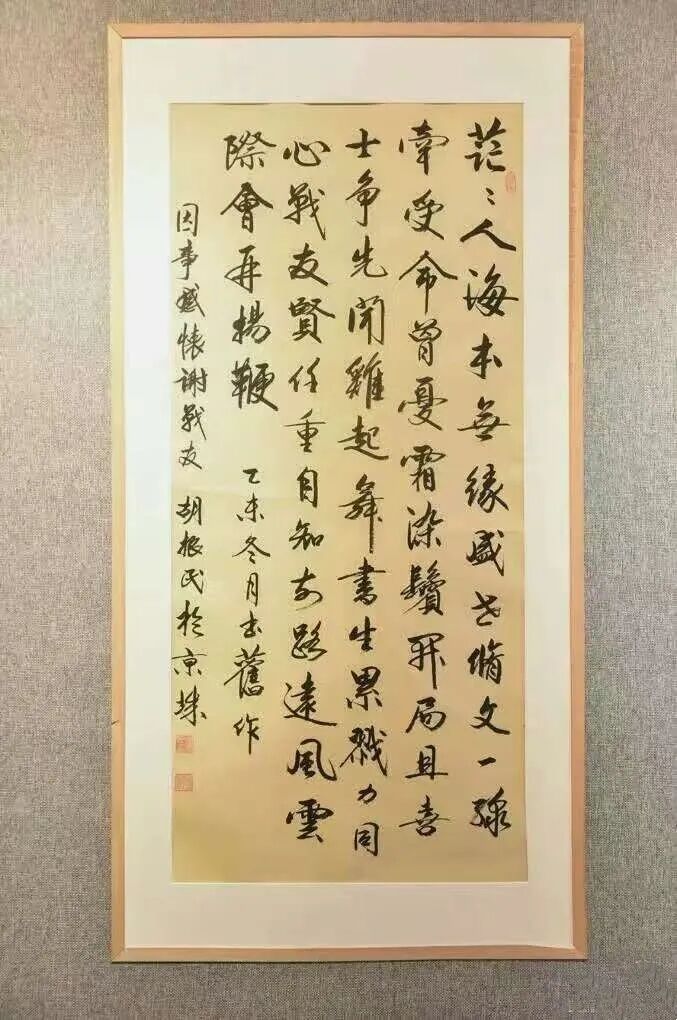 茫〻人海本無緣盛世脩文一線
牽受命曾憂霜染鬢開局且喜
士争先聞雞起舞書生累戮力同
心戰友賢任重自知前路遠風雲
際會再揚鞭
乙未冬月书舊作
因事感懷謝戰友 胡振民於京城